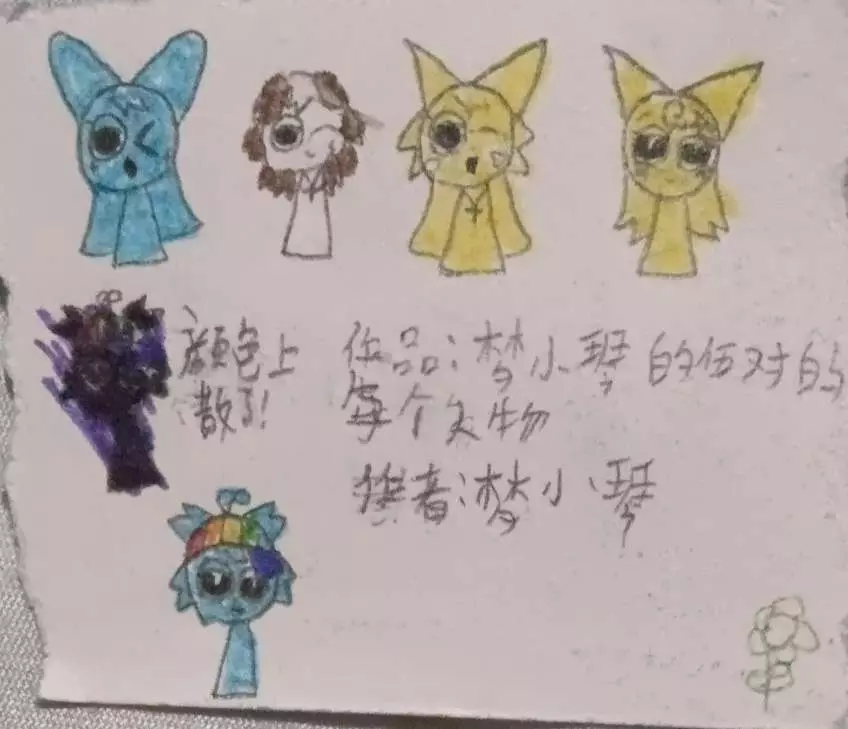 颜色上
散了!
作品:梦小琴的伍对的
每个人物
作者:梦小琴